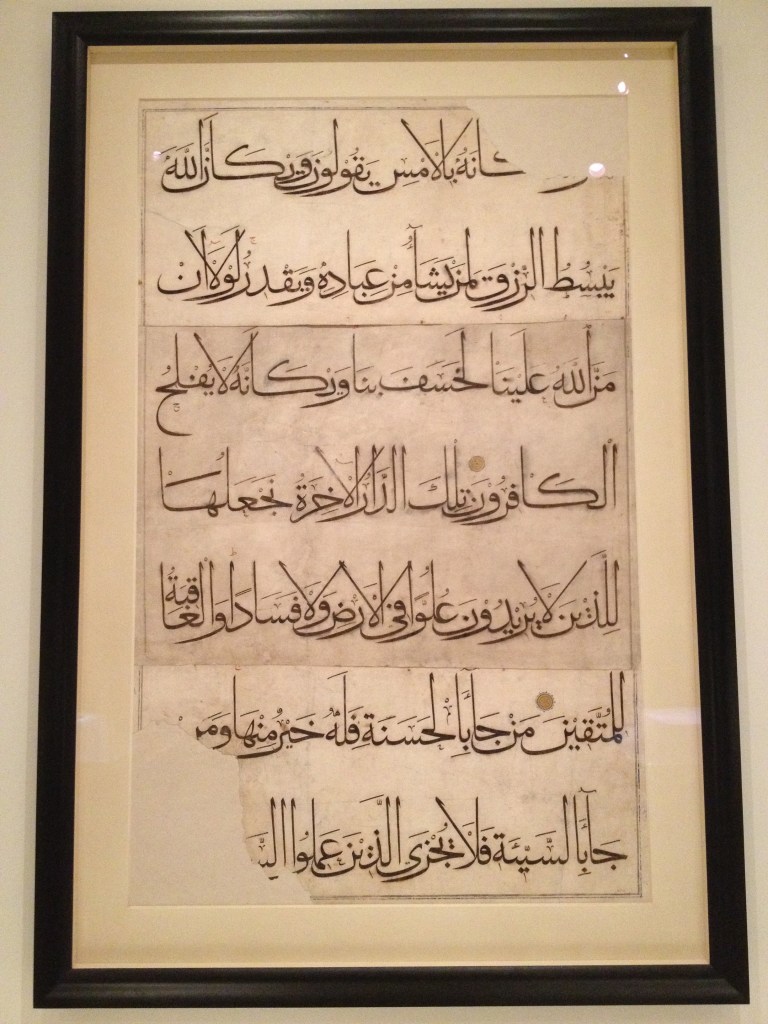 كَانَهُ بِالْاَمْسِ يَقُولُونَ وَيْكَاَنَّ اللّٰهَ
يَبْسُطُ الرِّزْقَ لِمَنْ يَشَآءُ مِنْ عِبَادِهِ وَيَقْدِرُ لَوْلَا اَنْ
مَنَّ اللّٰهُ عَلَيْنَا لَخَسَفَ بِنَا وَيْكَاَنَّهُ لَا يُفْلِحُ
الْكَافِرُونَ تِلْكَ الدَّارُ الْاٰخِرَةُ نَجْعَلُهَا
لِلَّذِينَ لَا يُرِيدُونَ عُلُوًّا فِى الْاَرْضِ وَلَا فَسَادًا وَالْعَاقِبَةُ
لِلْمُتَّقِينَ مَنْ جَآءَ بِالْحَسَنَةِ فَلَهُ خَيْرٌ مِنْهَا وَمَنْ
جَآءَ بِالسَّيِّئَةِ فَلَا يُجْزَى الَّذِينَ عَمِلُوا